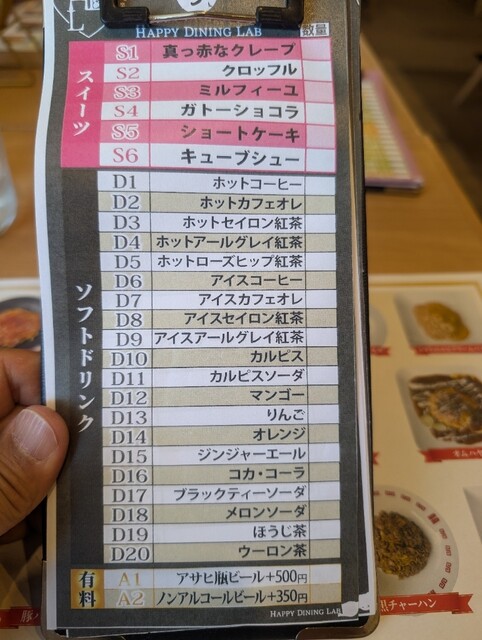 HAPPY DINING LAB 数量
スイーツ
S1 真っ赤なクレープ
S2 クロッフル
S3 ミルフィーユ
S4 ガトーショコラ
S5 ショートケーキ
S6 キューブシュー
ソフトドリンク
D1 ホットコーヒー
D2 ホットカフェオレ
D3 ホットセイロン紅茶
D4 ホットアールグレイ紅茶
D5 ホットローズヒップ紅茶
D6 アイスコーヒー
D7 アイスカフェオレ
D8 アイスセイロン紅茶
D9 アイスアールグレイ紅茶
D10 カルピス
D11 カルピスソーダ
D12 マンゴー
D13 りんご
D14 オレンジ
D15 ジンジャーエール
D16 コカ・コーラ
D17 ブラックティーソーダ
D18 メロンソーダ
D19 ほうじ茶
D20 ウーロン茶
有料
A1 アサヒ瓶ビール+500円
A2 ノンアルコールビール+350円
HAPPY DINING LAB
黒チャーハン